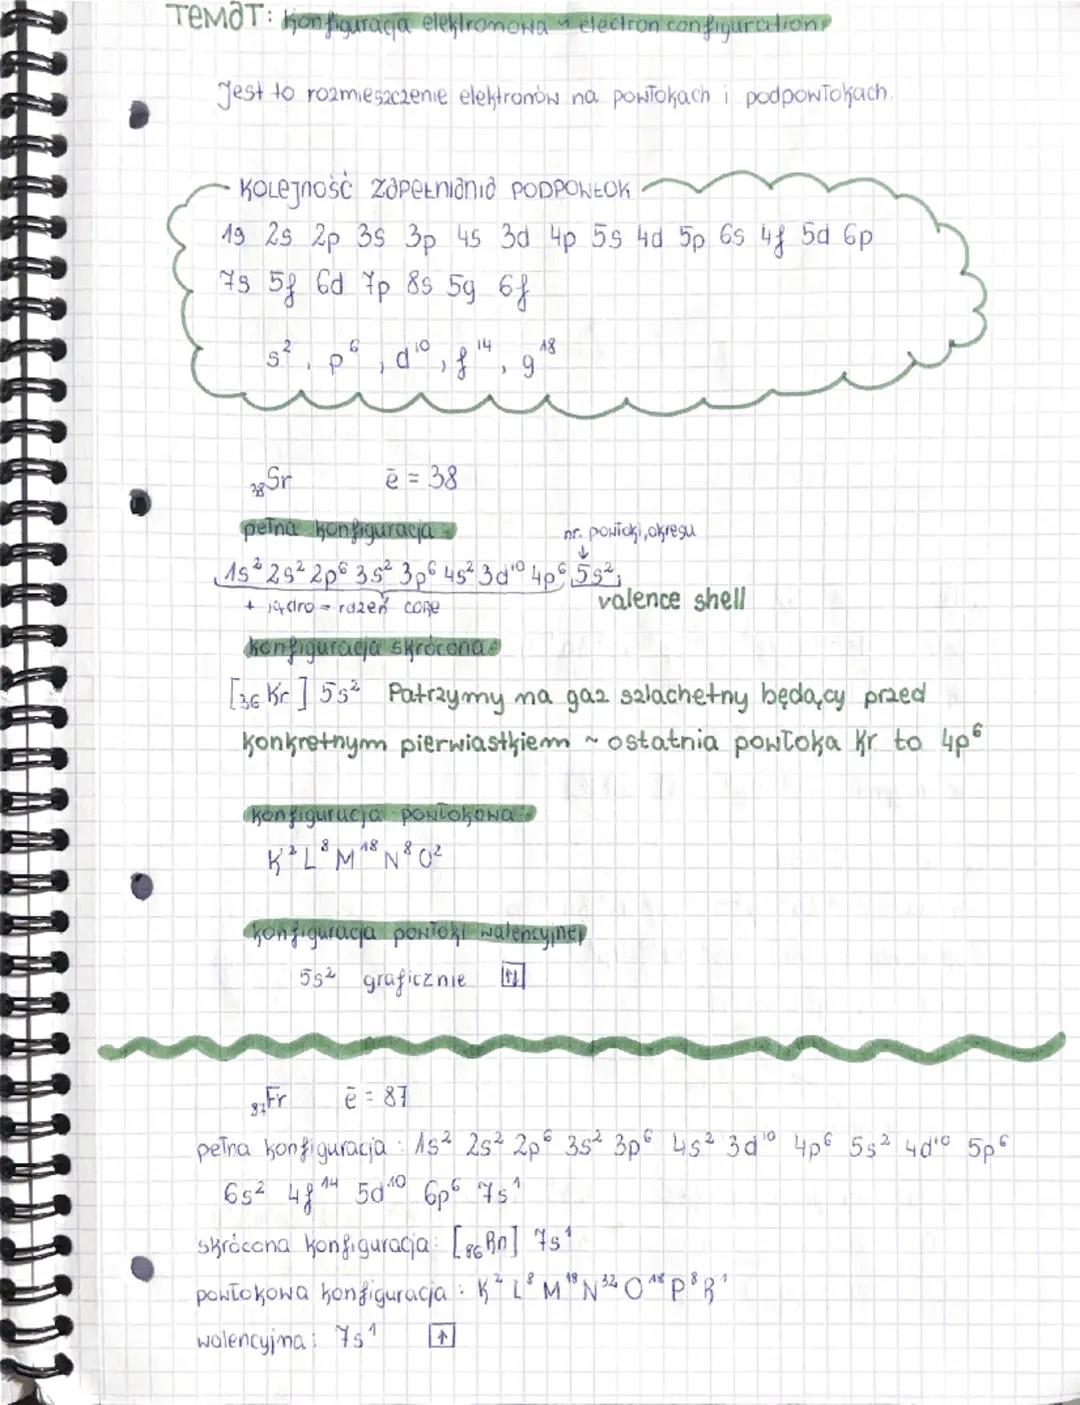 TEMAT: Konfiguracja elektronowa ~ electron configuration
Jest to rozmieszczenie elektronów na powłokach i podpowłokach.
KOLEJNOŚĆ ZAPEŁNIANIA PODPOWŁOK
1s 2s 2p 3s 3p 4s 3d 4p 5s 4d 5p 6s 4f 5d 6p
7s 5f 6d 7p 8s 5g 6f
s², p⁶, d¹⁰, f¹⁴, g¹⁸
₃₈Sr ē = 38
pełna konfiguracja
nr. powłoki, okresu
↓
1s² 2s² 2p⁶ 3s² 3p⁶ 4s² 3d¹⁰ 4p⁶ 5s²
+ jądro = rdzeń core
valence shell
konfiguracja skrócona
[₃₆Kr] 5s² Patrzymy na gaz szlachetny będący przed
konkretnym pierwiastkiem ~ ostatnia powłoka Kr to 4p⁶
konfiguracja powłokowa
K² L⁸ M¹⁸ N⁸ O²
konfiguracja powłoki walencyjnej
5s² graficznie ↑↓
₈₇Fr ē = 87
pełna konfiguracja : 1s² 2s² 2p⁶ 3s² 3p⁶ 4s² 3d¹⁰ 4p⁶ 5s² 4d¹⁰ 5p⁶
6s² 4f¹⁴ 5d¹⁰ 6p⁶ 7s¹
skrócona konfiguracja: [₈₆Rn] 7s¹
powłokowa konfiguracja : K² L⁸ M¹⁸ N³² O¹⁸ P⁸ R¹
walencyjna: 7s¹ ↑